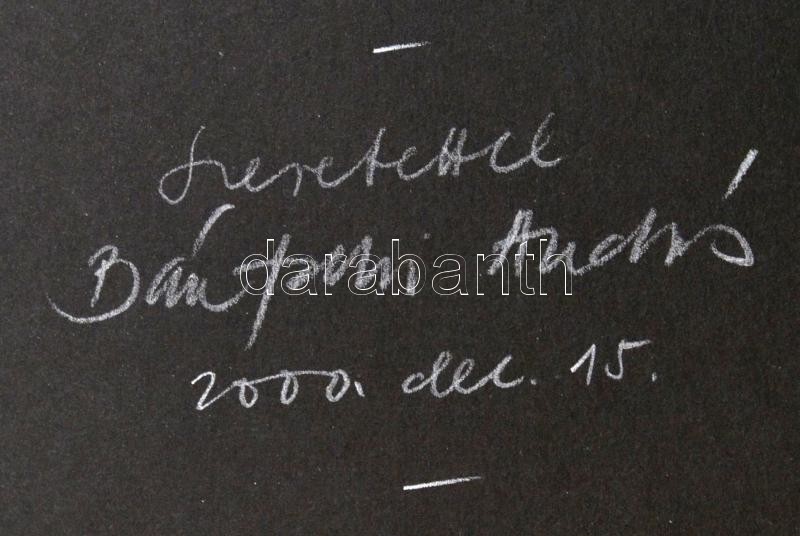 Szeretettel
Bánfalvi András
darabanth
2000. dec. 15.